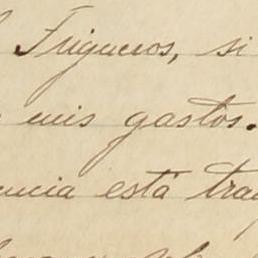 Trigueros, si
mis gastos.
encia está tra